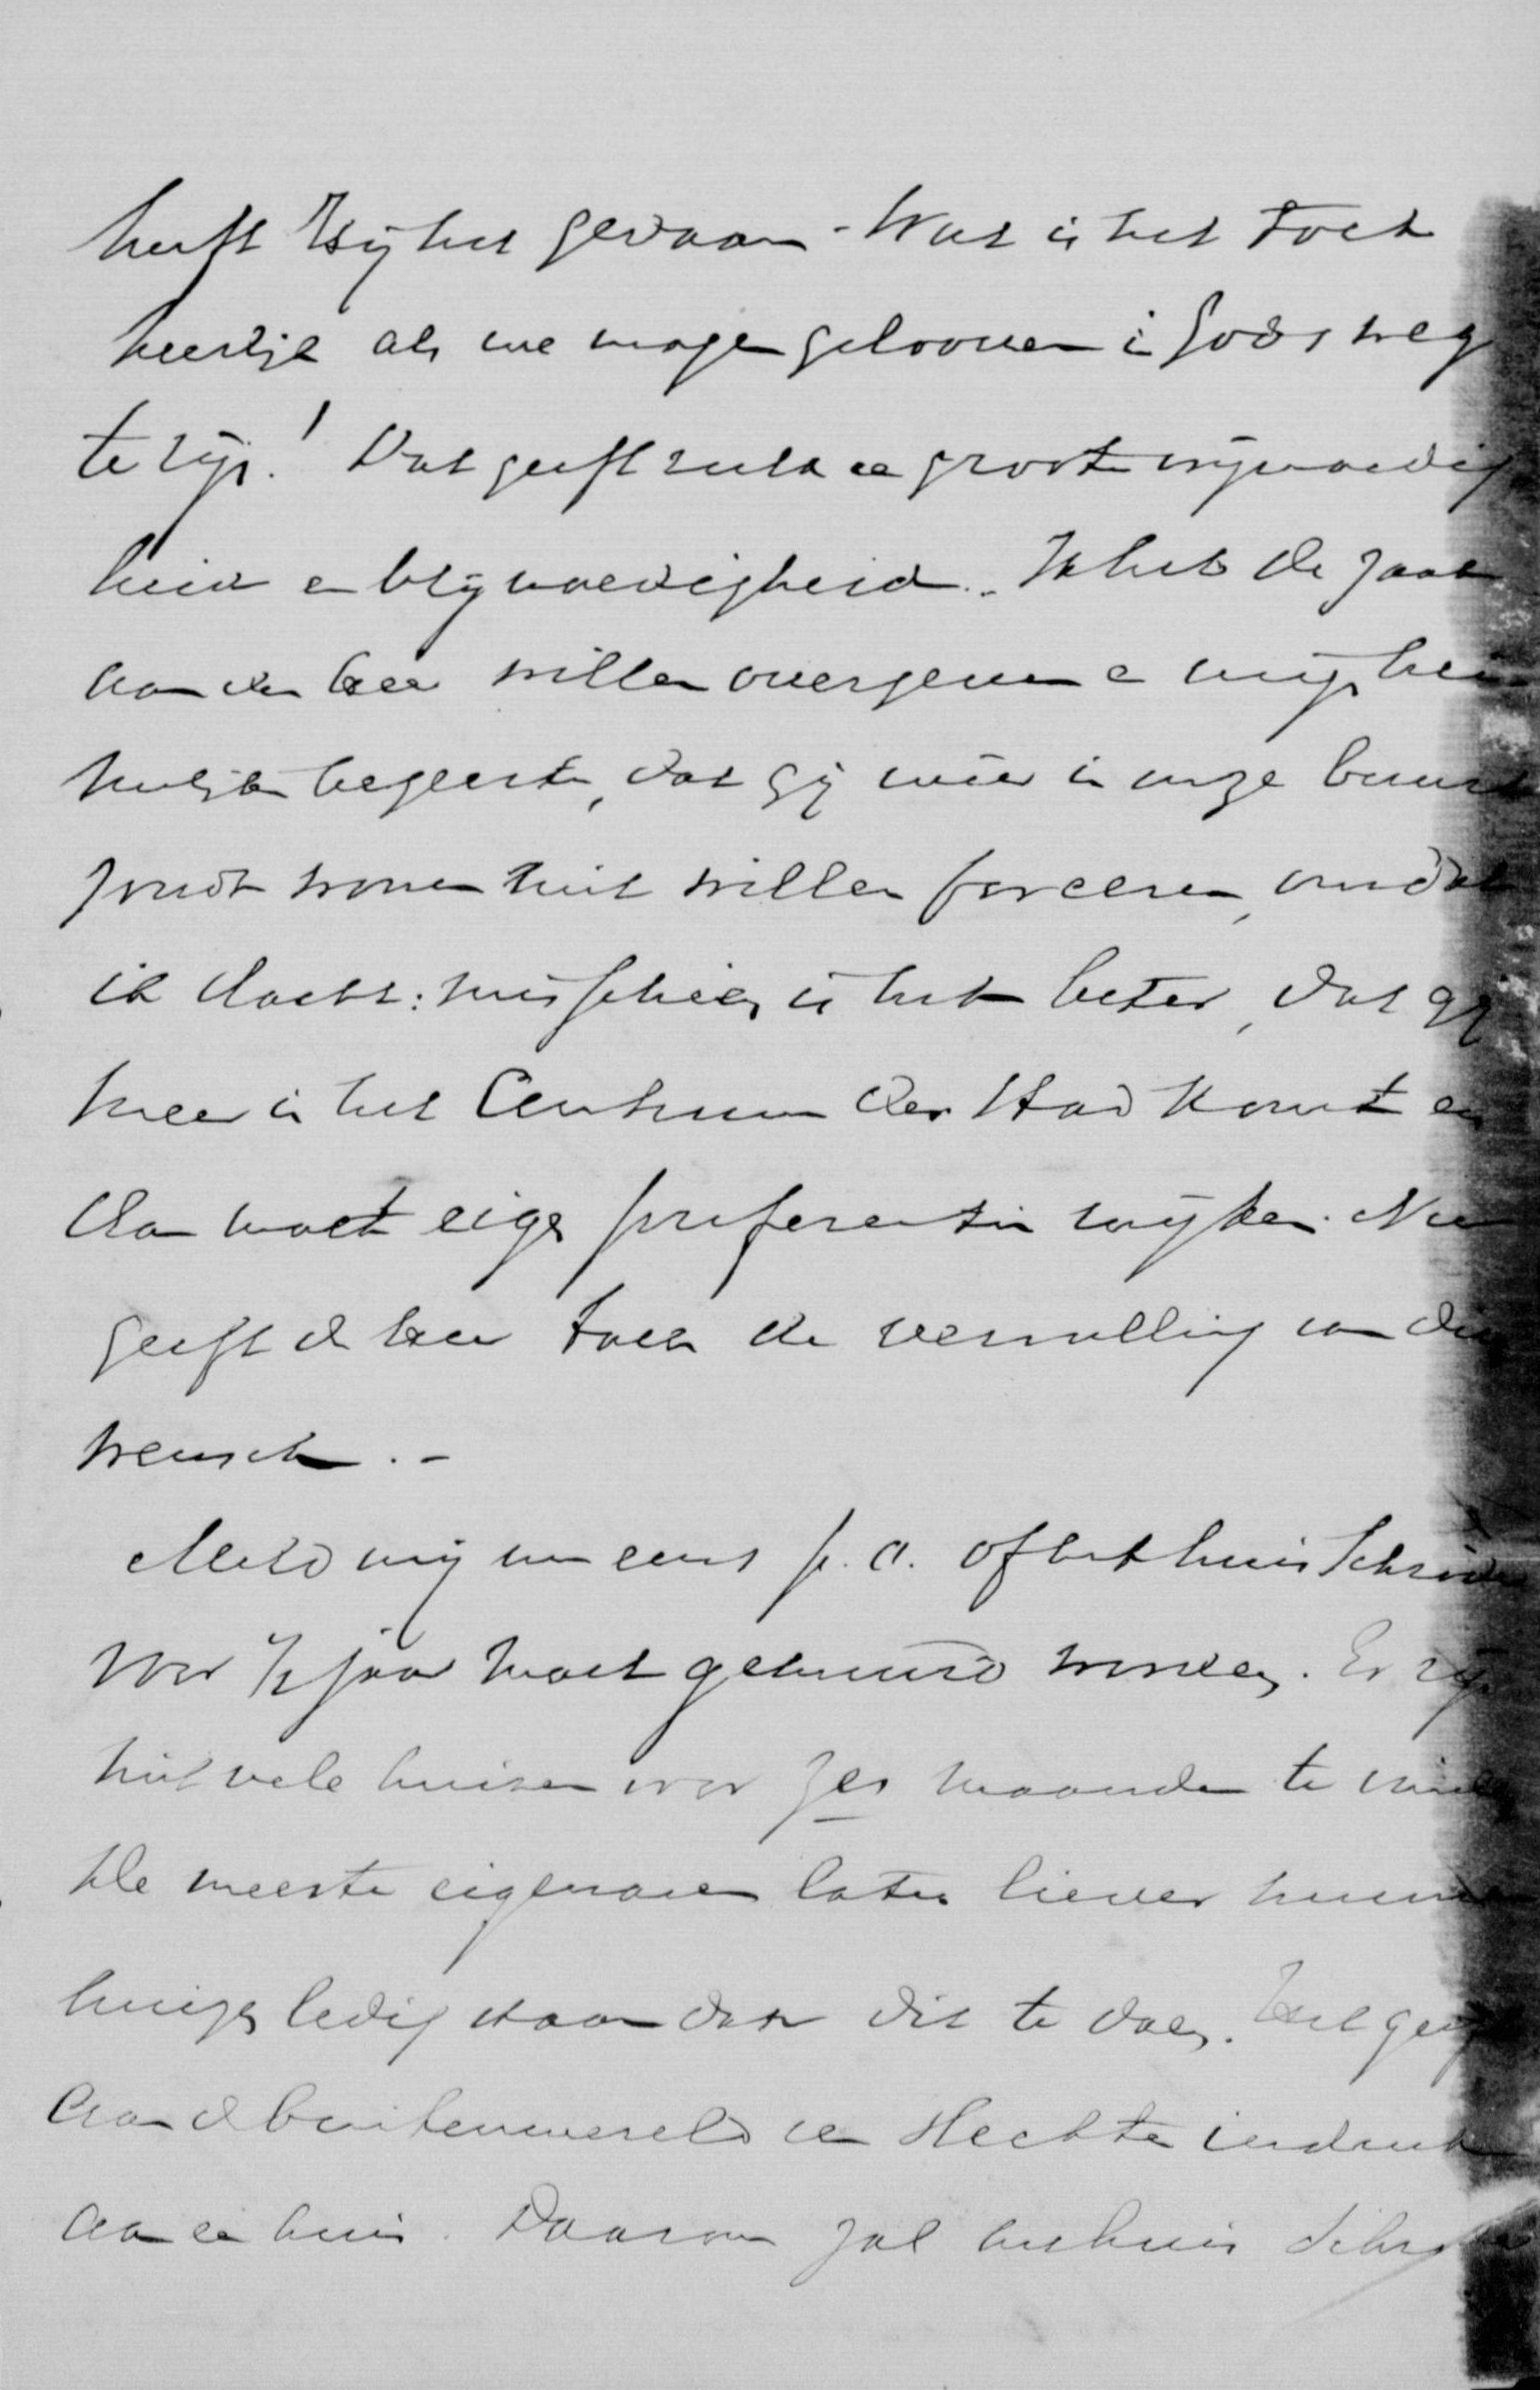 heeft Hij het gedaan. Wat is het toch
heerlijk als we mogen gelooven in Gods weg
te zijn! Dat geeft zulk een groote vrijmoedig
heid en blijmoedigheid. Ik heb de zaak
aan den Heer willen overgeven en mijn hei
melijke begeerte, dat gij weer in onze buurt
zoudt wonen niet willen forceeren, omdat
ik dacht: misschien is het beter, dat gij
meer in het Centrum der Stad komt en
dan moet eigen preferentie wijken. Nu
geeft de Heer toch de vervulling van dien
wensch. -
Meld mij nu eens p. o. of het huis Schröder
voor ½ jaar moet gehuurd worden. Er zijn
niet vele huizen voor zes maanden te vinden
De meeste eigenaren laten liever hunne
huizen ledig staan dan dit te doen. Het geeft
aan de buitenwereld een slechte indruk
aan een huis. Daarom zal het huis Schröder